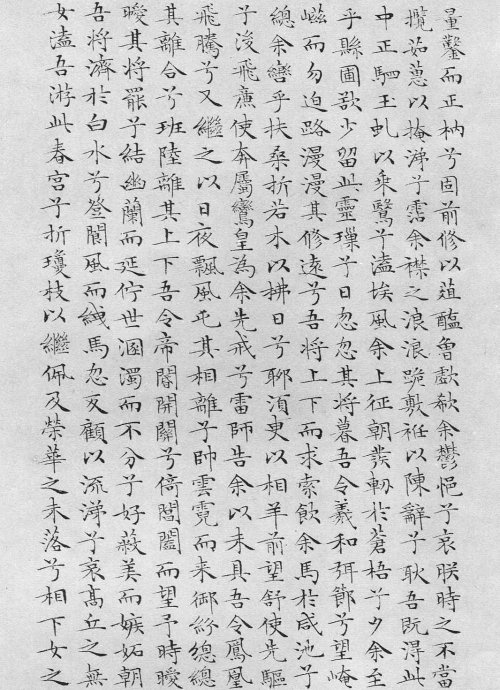 量鑿而正枘兮固前修以菹醢曾歔欷余鬱悒兮哀朕時之不當
攬茹蕙以掩涕兮霑余襟之浪浪跪敷衽以陳辭兮耿吾既得此
中正駟玉虬以乘鷖兮溘埃風余上征朝發軔於蒼梧兮夕余至
乎縣圃欲少留此靈瑣兮日忽忽其將暮吾令羲和弭節兮望崦
嵫而勿迫路漫漫其修遠兮吾將上下而求索飲余馬於咸池兮
總余轡乎扶桑折若木以拂日兮聊須臾以相羊前望舒使先驅
兮後飛廉使奔屬鸞皇為余先戒兮雷師告余以未具吾令鳳凰
飛騰兮又繼之以日夜飄風屯其相離兮帥雲霓而来御紛總總
其離合兮班陸離其上下吾令帝閽開關兮倚閶闔而望予時曖
曖其將罷兮結幽蘭而延佇世溷濁而不分兮好蔽美而嫉妬朝
吾將濟於白水兮登閬風而紲馬忽反顧以流涕兮哀高丘之無
女溘吾游此春宮兮折瓊枝以繼佩及榮華之未落兮相下女之